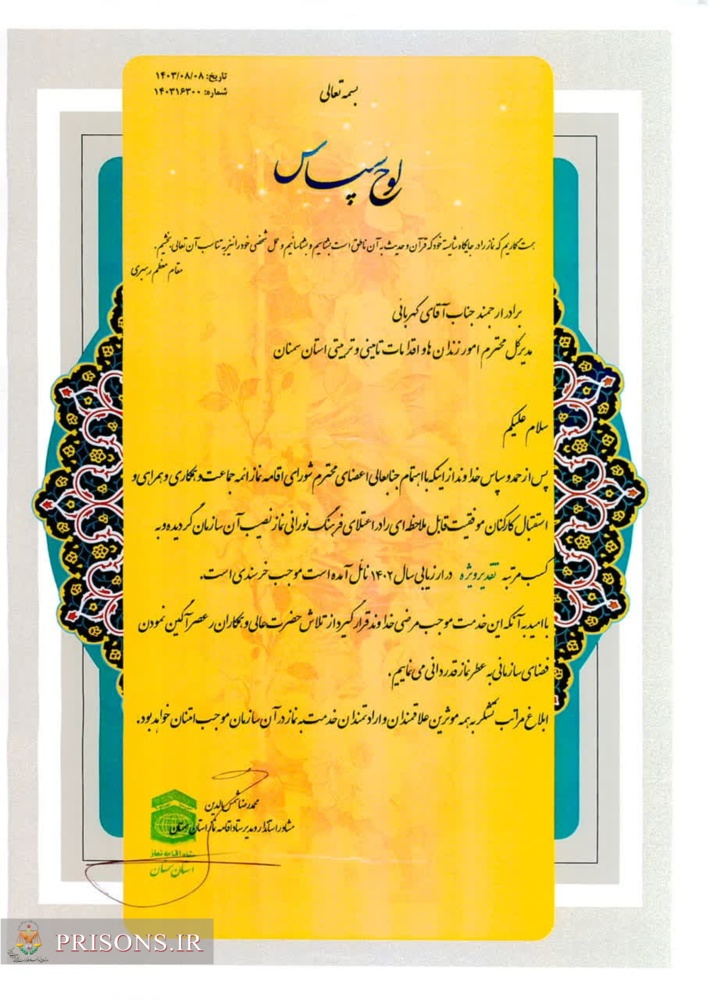 تاریخ: ۱۴۰۳/۰۸/۰۸
شماره: ۱۴۰۳۱۶۳۰۰
بسمه تعالی
لوح سپاس
همت گماریم که نماز را در جایگاه شایسته خود که قرآن و حدیث به آن ناطق است بشناسیم و بشناسانیم و عمل شخصی خود را نیز به تناسب آن تعالی بخشیم.
مقام معظم رهبری
برادر ارجمند جناب آقای کهربائی
مدیرکل محترم امور زندان ها و اقدامات تامینی و تربیتی استان سمنان
سلام علیکم
پس از حمد و سپاس خداوند از اینکه با اهتمام جنابعالی اعضای محترم شورای اقامه نماز ائمه جماعت و همکاری و همراهی و
استقبال کارکنان موفقیت قابل ملاحظه ای را در اعتلای فرهنگ نورانی نماز نصیب آن سازمان گردیده و به
کسب مرتبه تقدیر ویژه در ارزیابی سال ۱۴۰۲ نائل آمده است موجب خرسندی است.
با امید به آنکه این خدمت موجب مرضی خداوند قرار گیرد از تلاش حضرت عالی و همکاران در عصرآگین نمودن
فضای سازمانی به عطر نماز قدردانی می نماییم.
ابلاغ مراتب تشکر به همه موثرین علاقمندان و ارادتمندان خدمت به نماز در آن سازمان موجب امتنان خواهد بود.
محمدرضا شمس الدین
مشاور استاندار و مدیر ستاد اقامه نماز استان سمنان
ستاد اقامه نماز
استان سمنان
PRISONS.IR